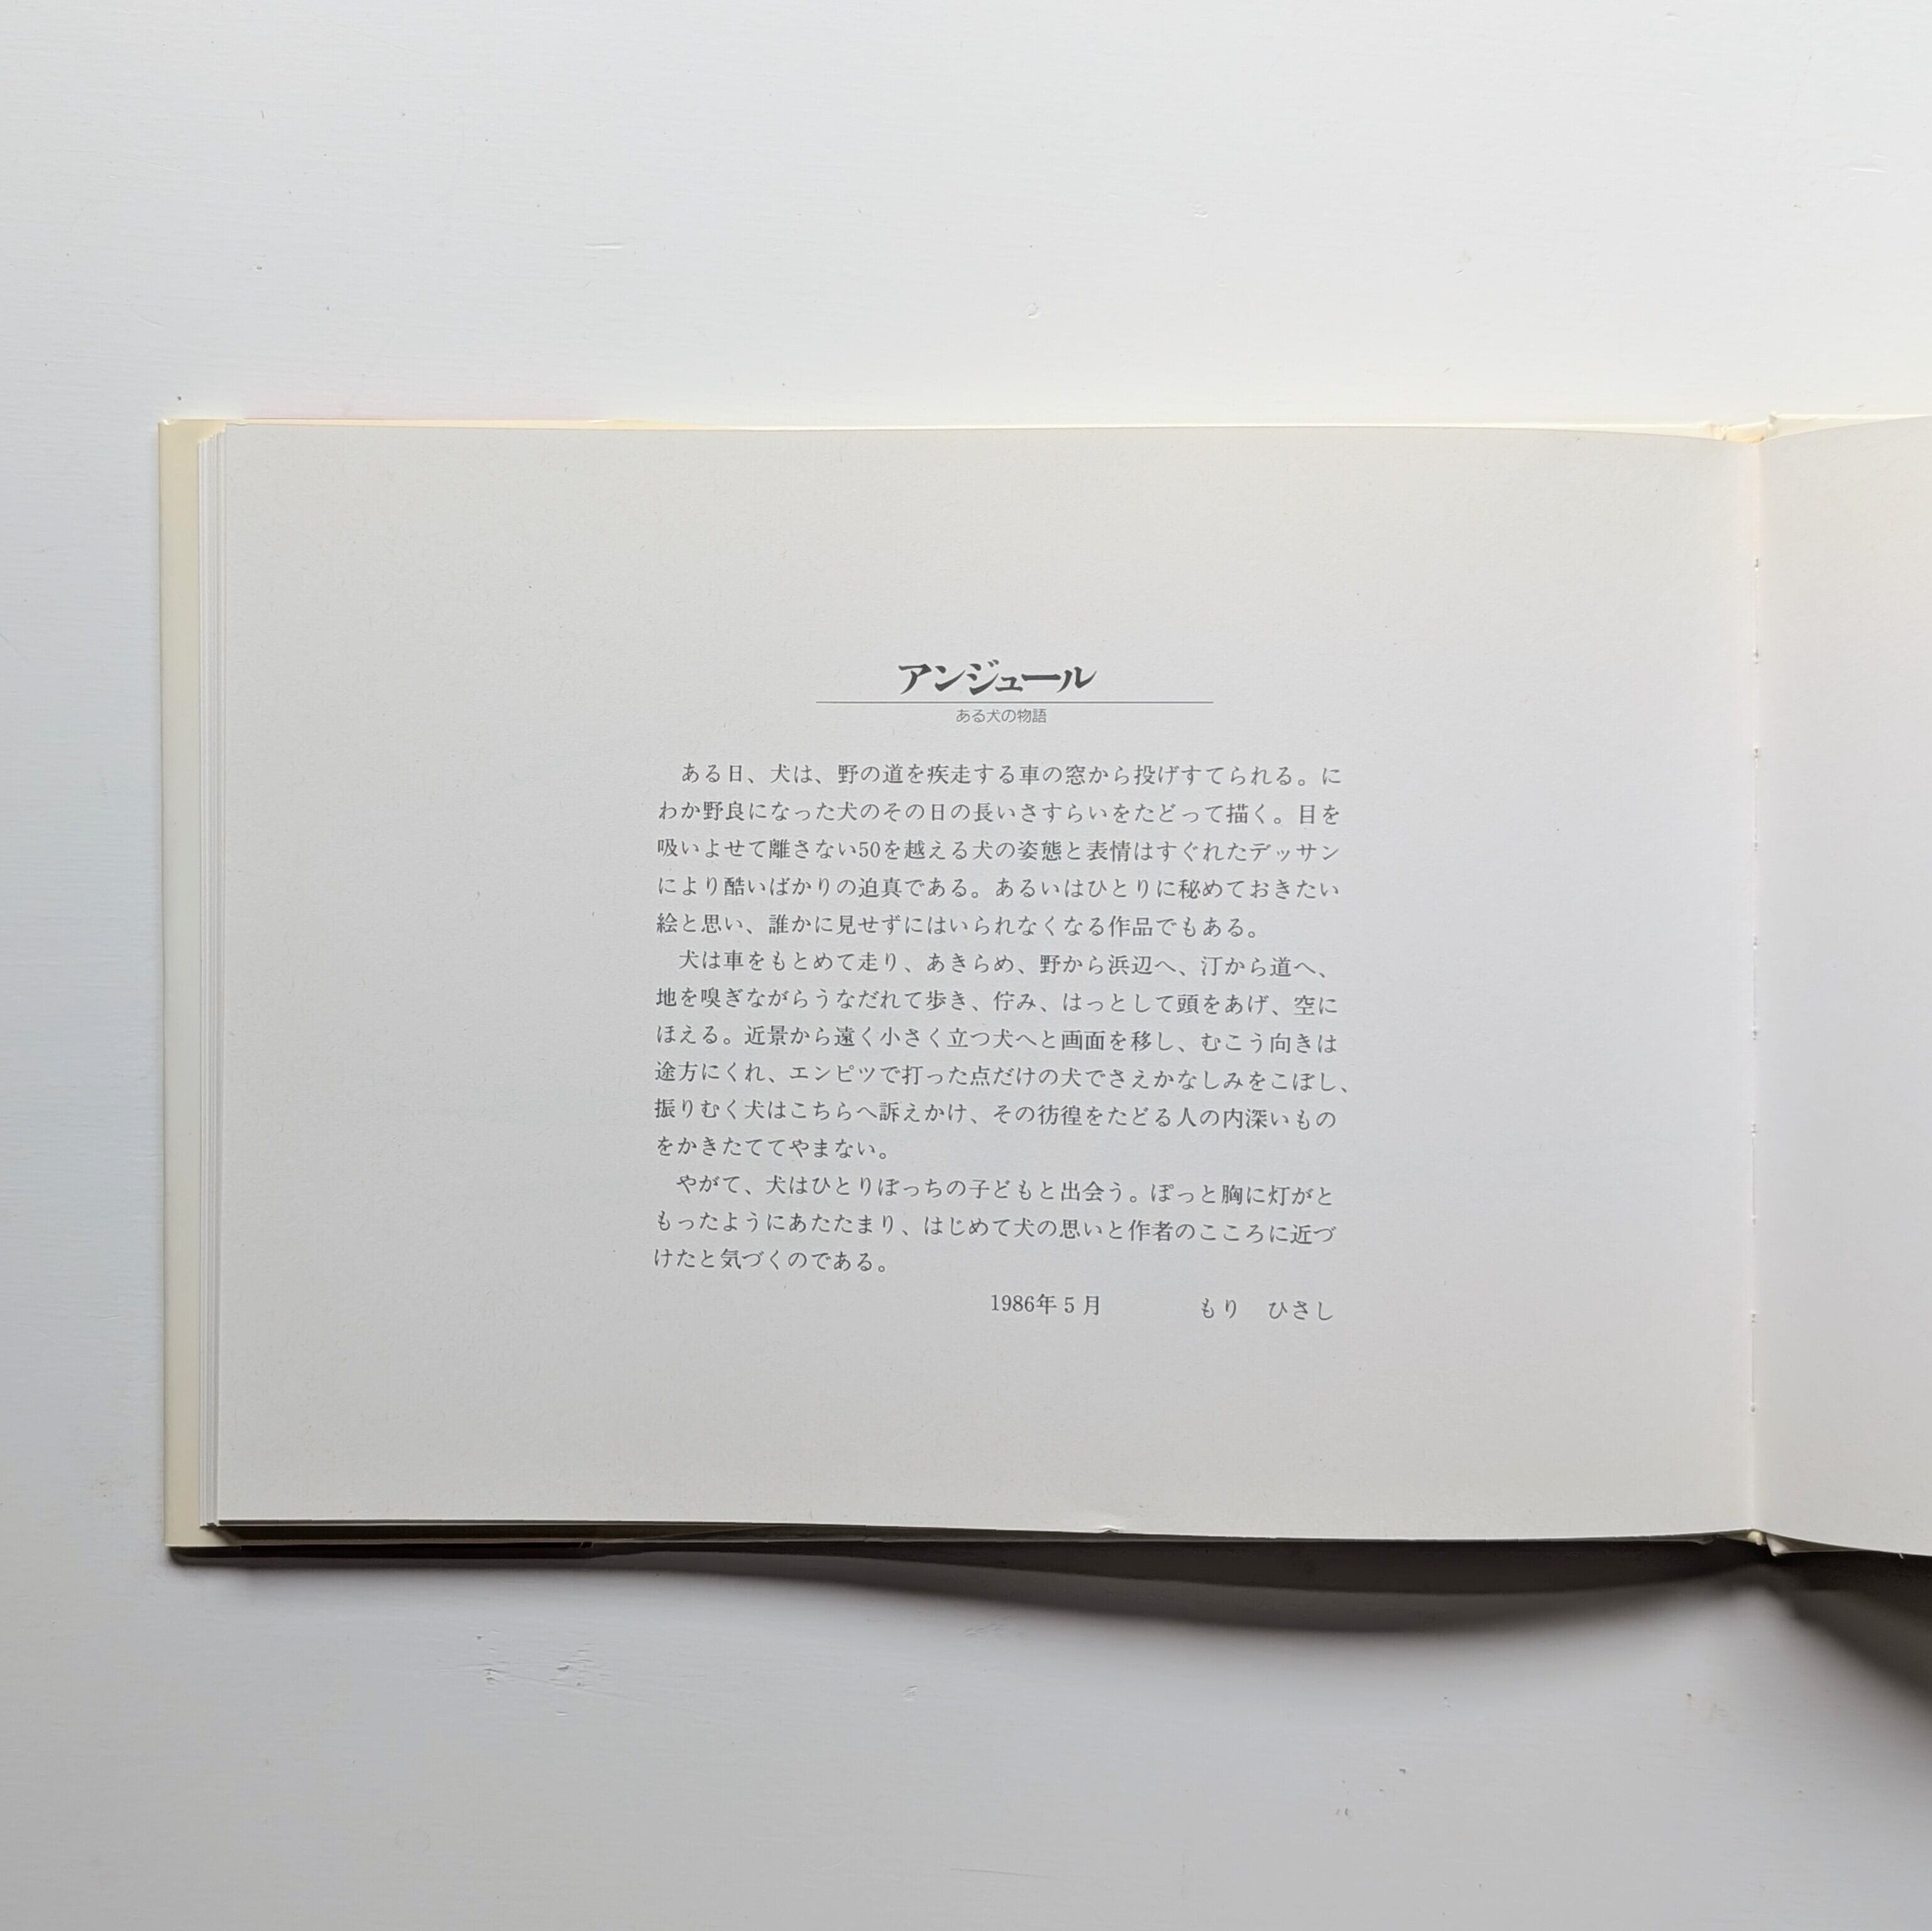 アンジュール
ある犬の物語
ある日、犬は、野の道を疾走する車の窓から投げすてられる。に
わか野良になった犬のその日の長いさすらいをたどって描く。目を
吸いよせて離さない50を越える犬の姿態と表情はすぐれたデッサン
により酷いばかりの迫真である。あるいはひとりに秘めておきたい
絵と思い、誰かに見せずにはいられなくなる作品でもある。
犬は車をもとめて走り、あきらめ、野から浜辺へ、汀から道へ、
地を嗅ぎながらうなだれて歩き、佇み、はっとして頭をあげ、空に
ほえる。近景から遠く小さく立つ犬へと画面を移し、むこう向きは
途方にくれ、エンピツで打った点だけの犬でさえかなしみをこぼし、
振りむく犬はこちらへ訴えかけ、その彷徨をたどる人の内深いもの
をかきたててやまない。
やがて、犬はひとりぼっちの子どもと出会う。ぽっと胸に灯がと
もったようにあたたまり、はじめて犬の思いと作者のこころに近づ
けたと気づくのである。
1986年5月　もり　ひさし